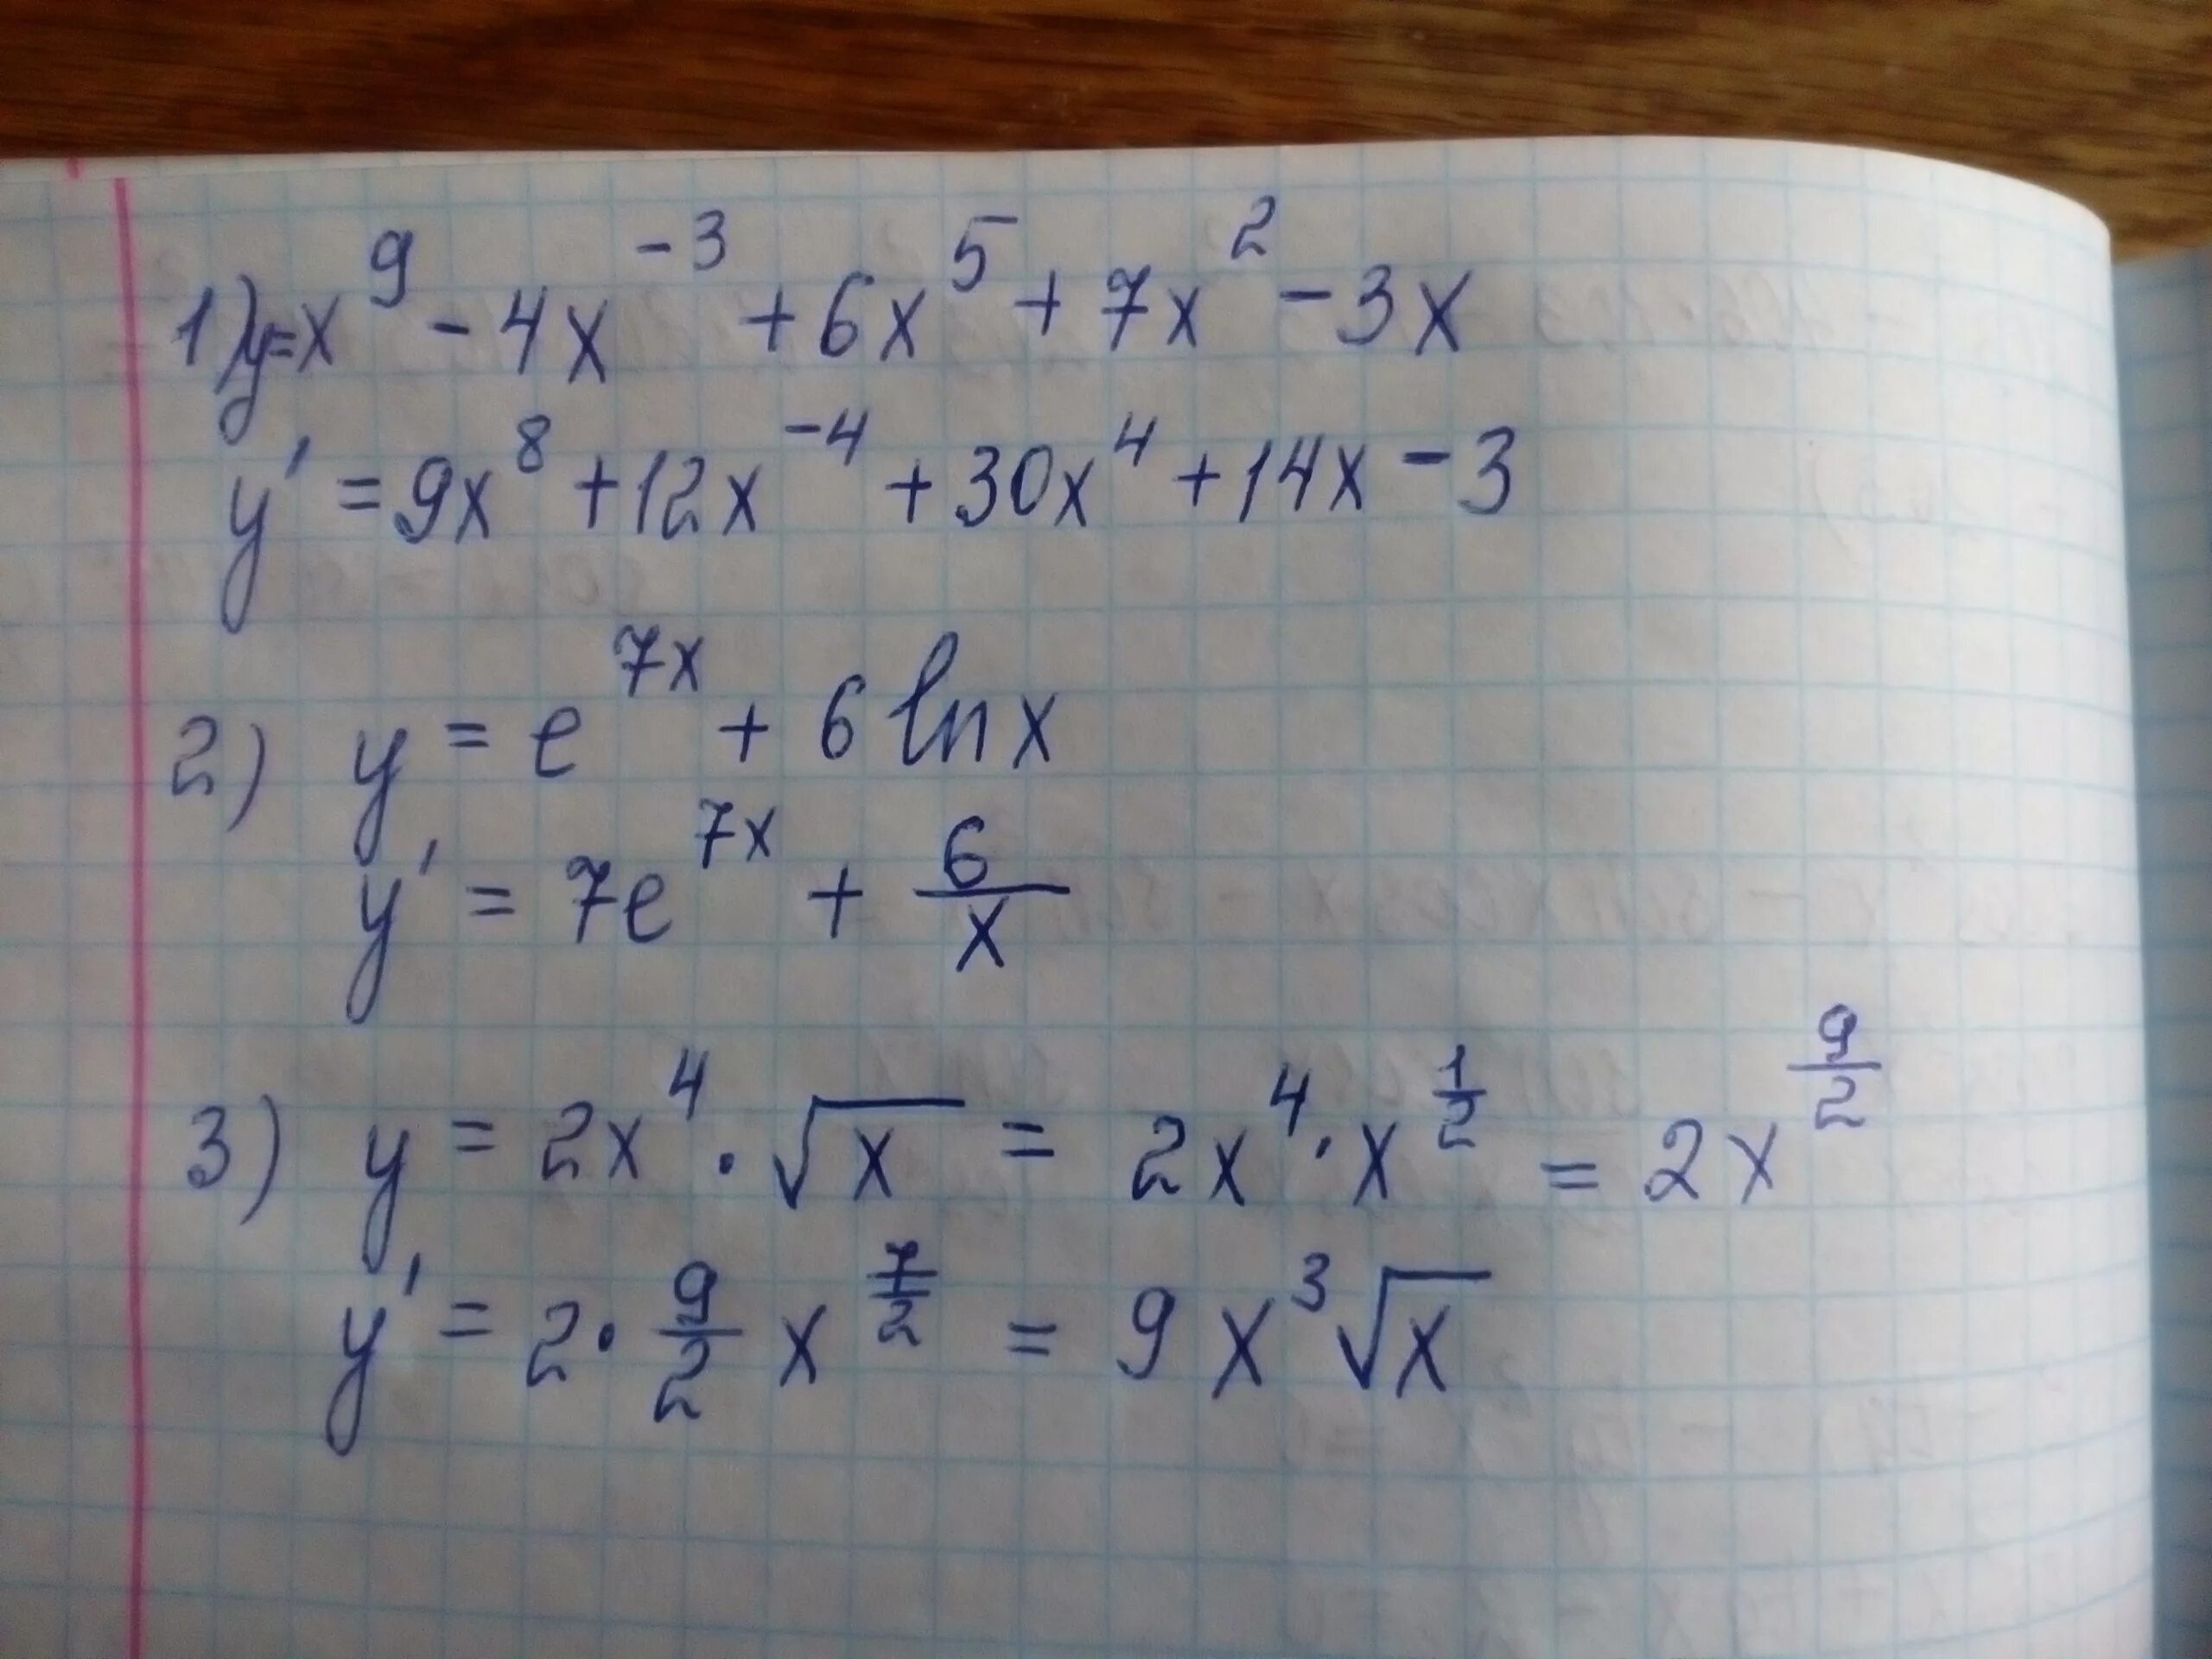 1) y=x⁹ - 4x⁻³ + 6x⁵ + 7x² - 3x
y' = 9x⁸ + 12x⁻⁴ + 30x⁴ + 14x - 3
2) y = e^(7x) + 6 ln x
y' = 7e^(7x) + 6/x
3) y = 2x⁴ · √x = 2x⁴ · x^(1/2) = 2x^(9/2)
y' = 2 · 9/2 x^(7/2) = 9x³√x